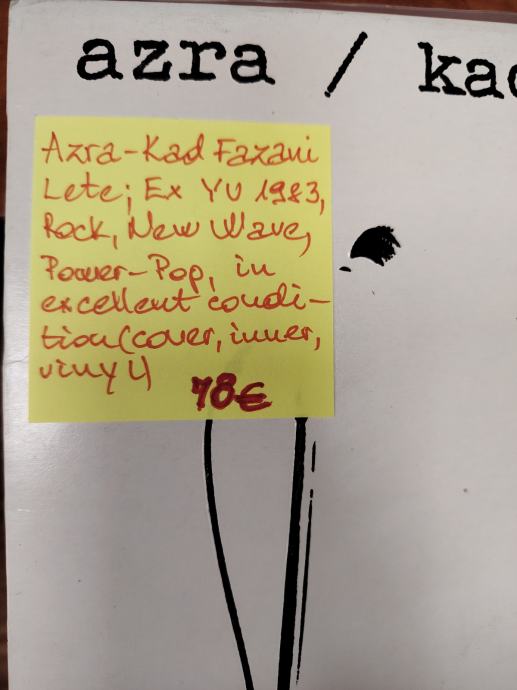 azra / kad
Azra-Kad Fazani
Lete; Ex YU 1983,
Rock, New Wave,
Power-Pop, in
excellent condi-
tion (cover, inner,
vinyl)
78€